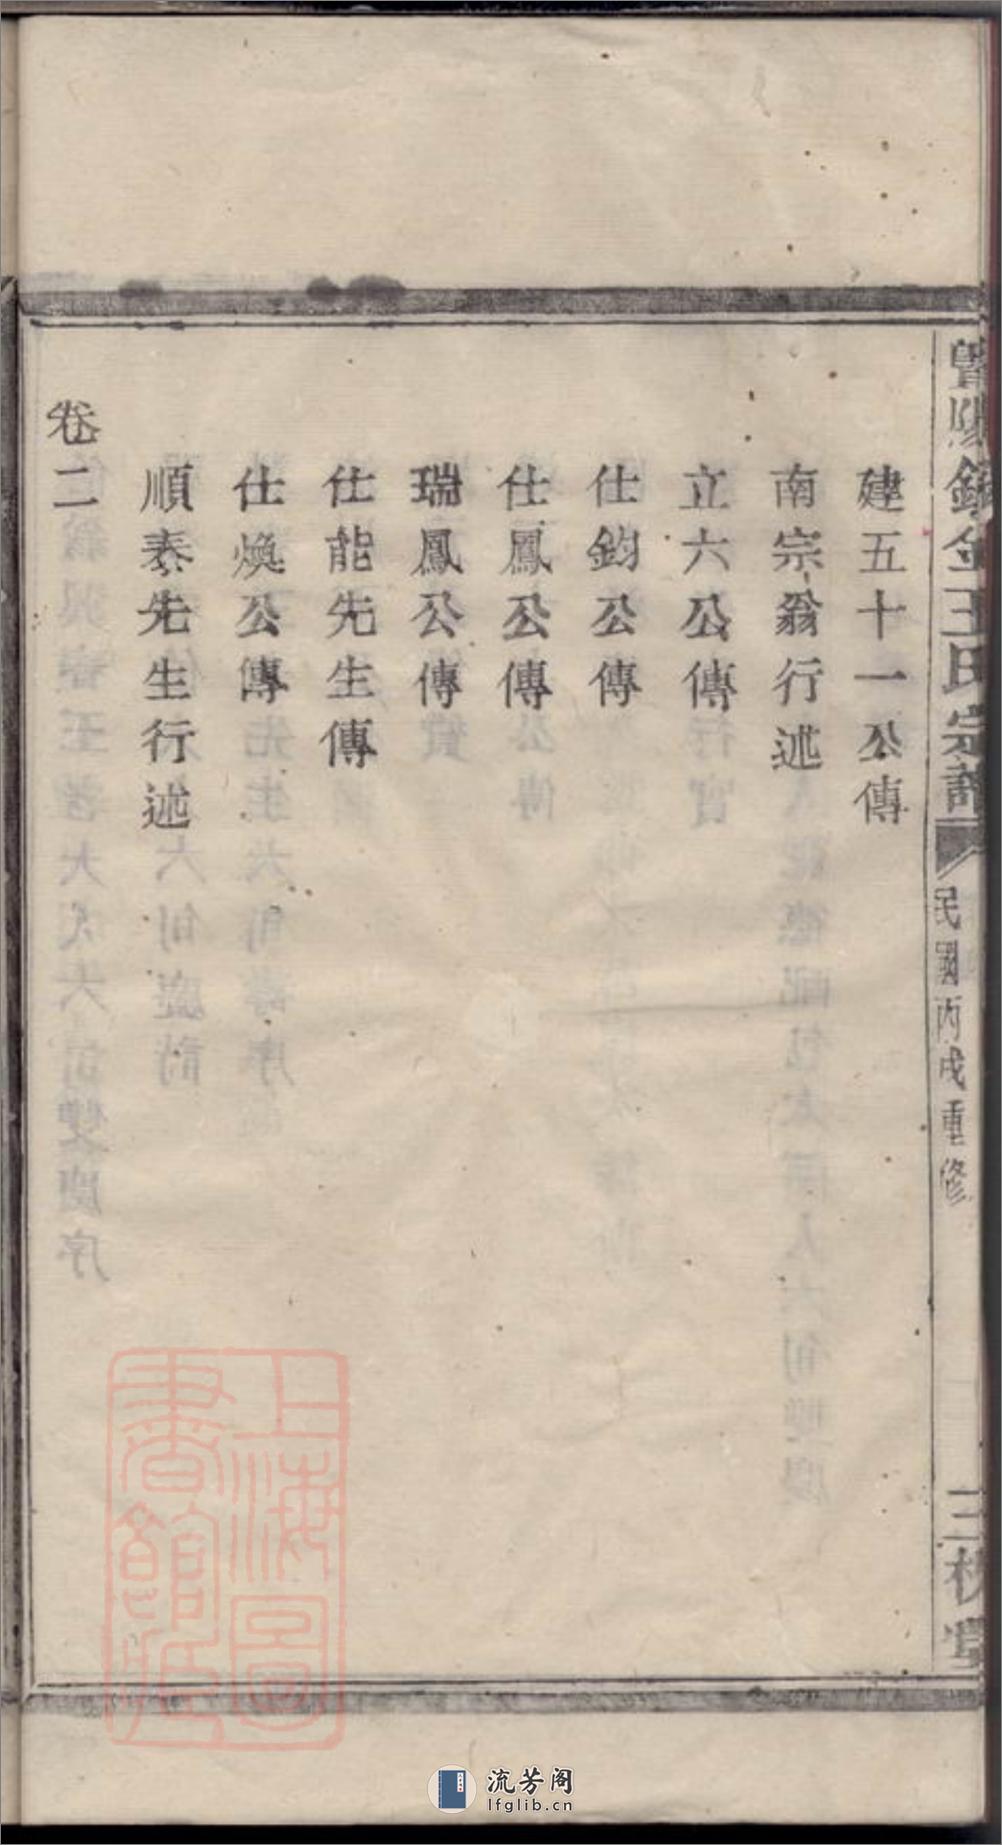 暨陽錦金王氏宗譜
民國丙戌重修
三槐堂
建五十一公傳
南宗翁行述
立六公傳
仕鈞公傳
仕鳳公傳
瑞鳳公傳
仕能先生傳
仕煥公傳
順泰先生行述
卷二
上海圖書館藏
流芳阁
lfglib.cn